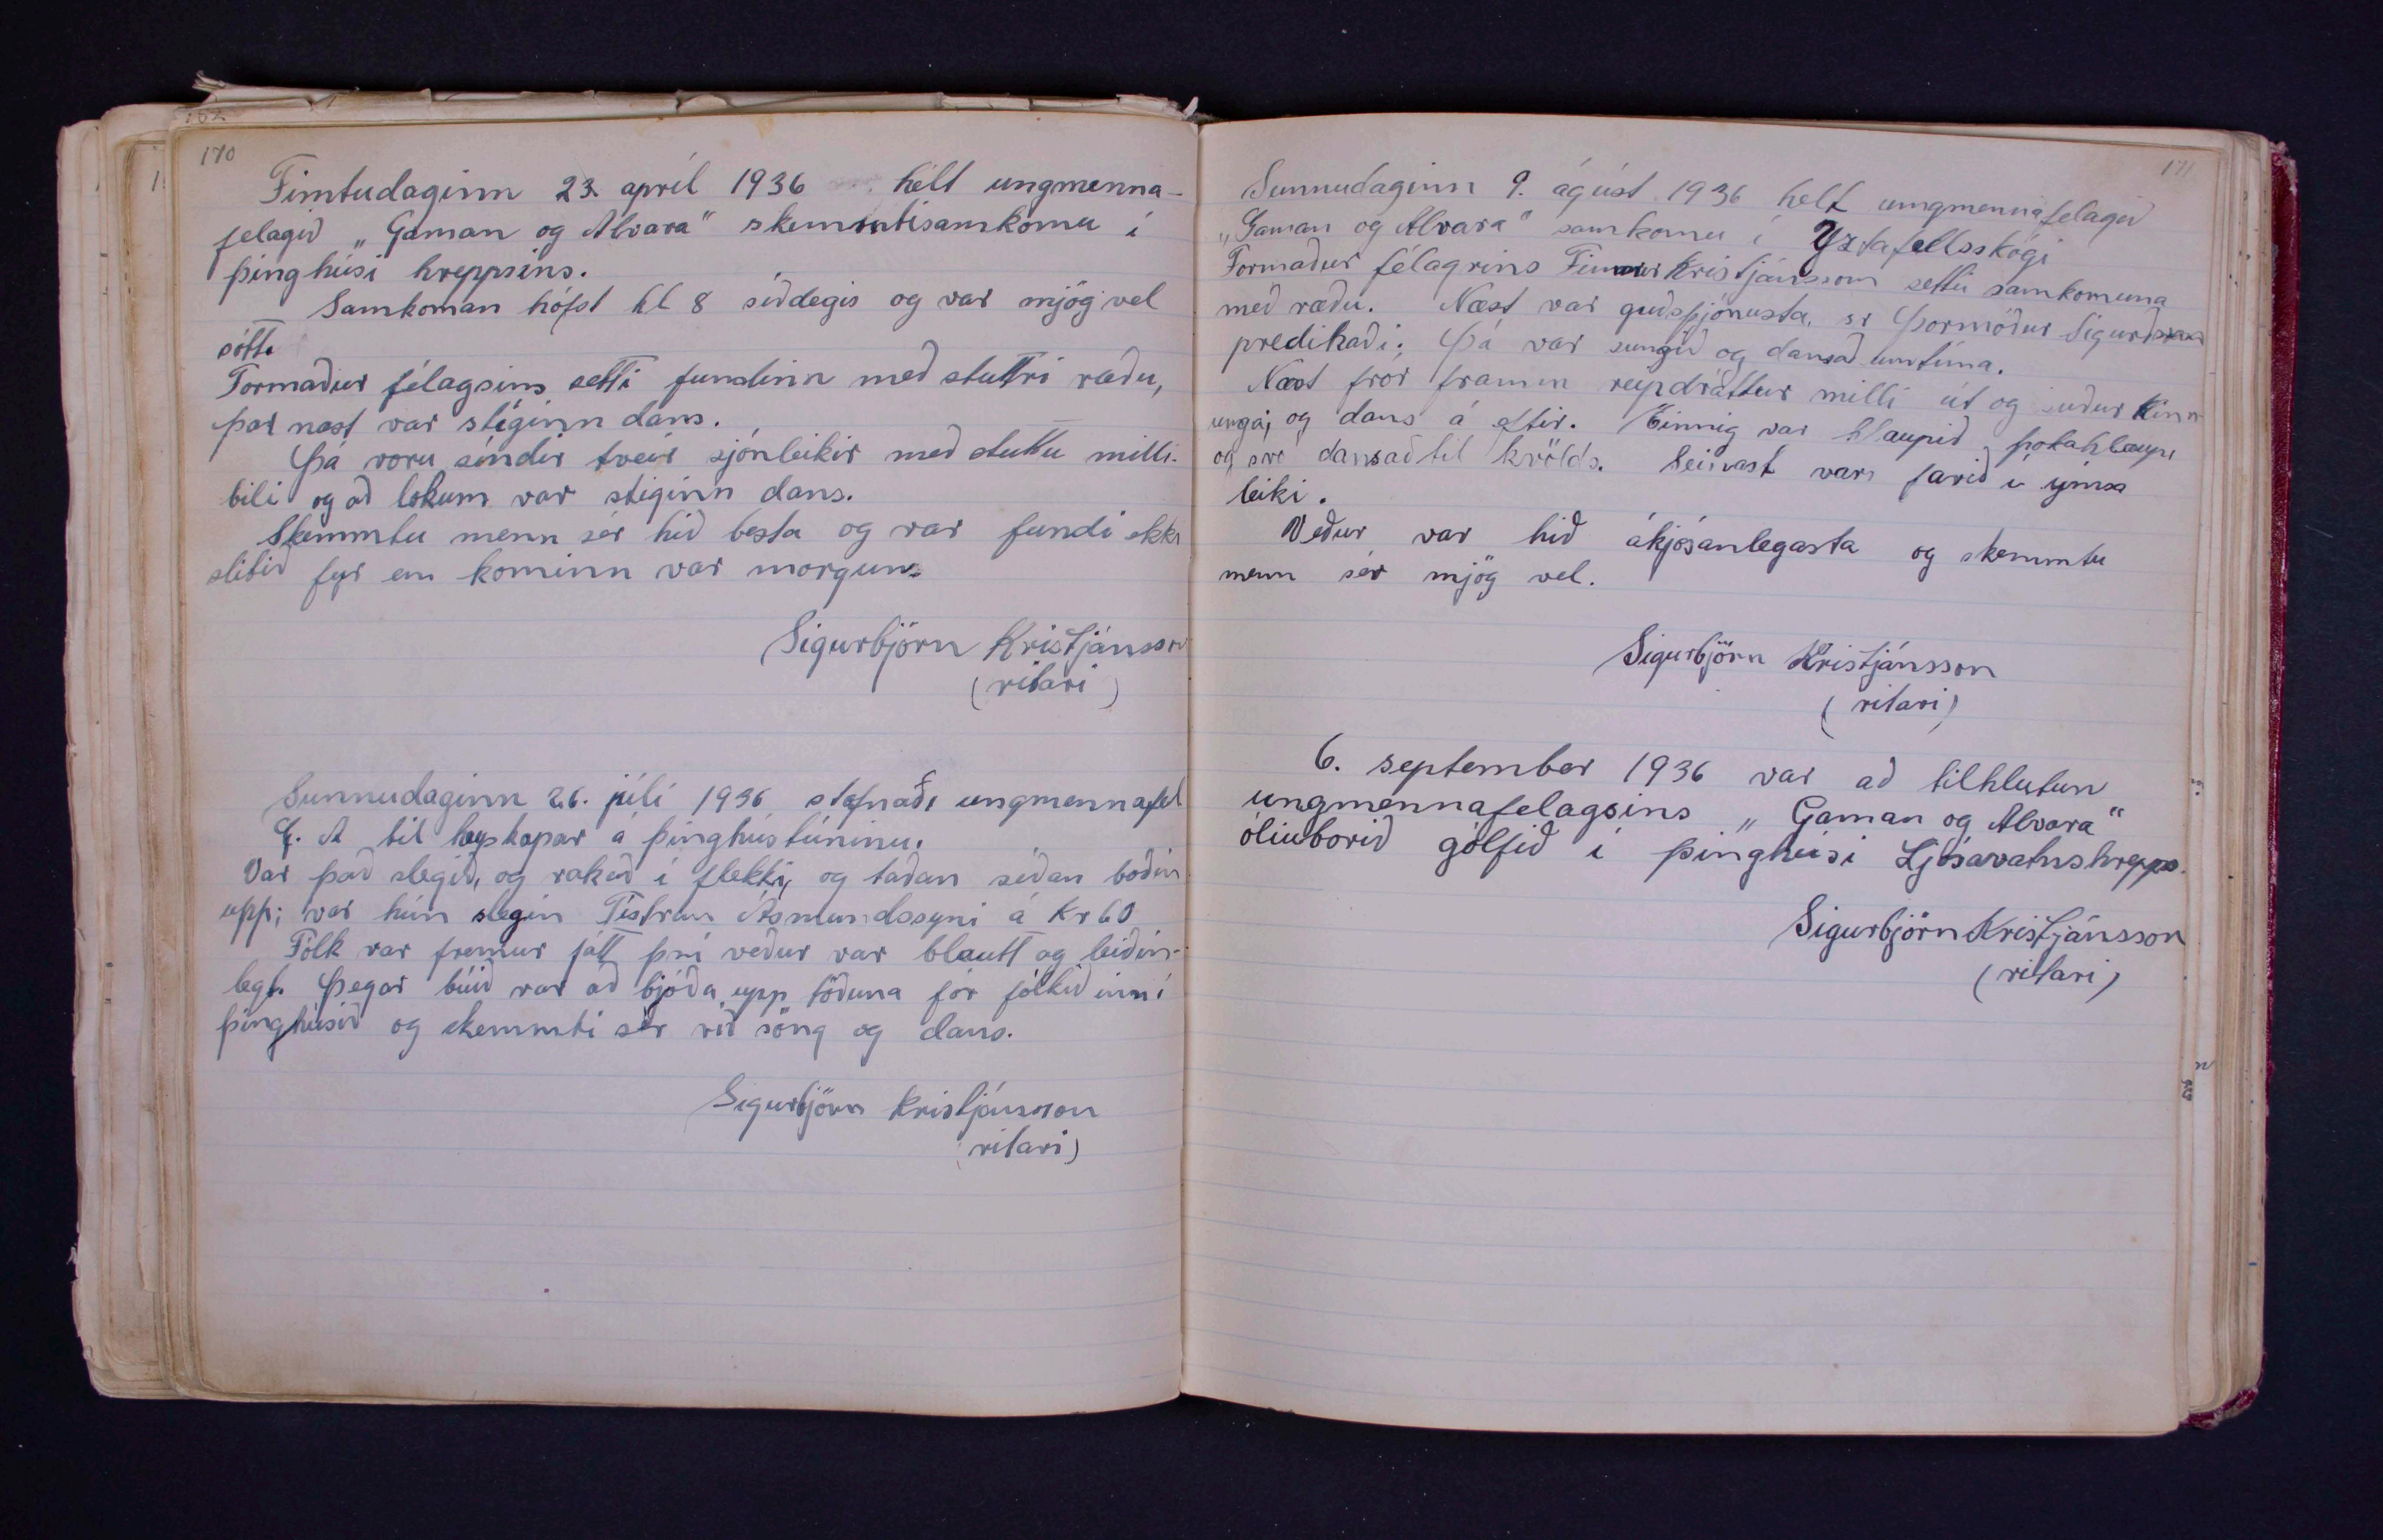 162
170
Fimtudaginn 23. apríl 1936 hélt ungmenna-
felagið „Gaman og Alvara" skemntisamkomu í
þinghúsi hreppsins.
Samkoman hófst kl 8 síðdegis og var mjög vel
sótt.
Formaður félagsins setti fundinn með stuttri ræðu,
þar næst var stíginn dans.
Þá voru síndir tveir sjónleikir með stuttu milli-
bili og að lokum var stiginn dans.
Skemmtu menn sér hið besta og var fundi ekki
slitið fyr en kominn var morgun.
Sigurbjörn Kristjánsson
(ritari)
Sunnudaginn 26. júlí 1936 stefnaði ungmennafel
G. A til heyskapar á þinghústúninu.
Var það slegið, og rakað í flekki, og taðan síðan boðin
upp; var hún slegin Tistran Ásmundssyni á Kr 60
Fólk var fremur fátt því veður var blautt og leiðin-
legt. Þegar búið var að bjóða upp töðuna fór fólkið inní
þinghúsið og skemmti sér við söng og dans.
Sigurbjörn Kristjánsson
(ritari)
171
Sunnudaginn 9. ágúst 1936 helt ungmennafelagið
„Gaman og Alvara" samkomu í Yztafellsskógi
Formaður félagsins Finnur Kristjánsson setti samkomuna
með ræðu. Næst var guðsþjónusta, sr Þormóður Sigurðsson
predikaði; Þá var sungið og dansað umtíma.
Næst fror framm reipdráttur milli út og suður Kinn-
unga; og dans á eftir. Einnig var hlaupið pokahlaup
og svo dansað til kvölds. Seinast var farið í ýmsa
leiki.
Veður var hið ákjósanlegasta og skemmtu
menn sér mjög vel.
Sigurbjörn Kristjánsson
(ritari)
6. september 1936 var að tilhlutun
ungmennafelagsins „Gaman og Alvara"
óliuborið gólfið í þinghúsi Ljósavatnshrepps.
Sigurbjörn Kristjánsson
(ritari)